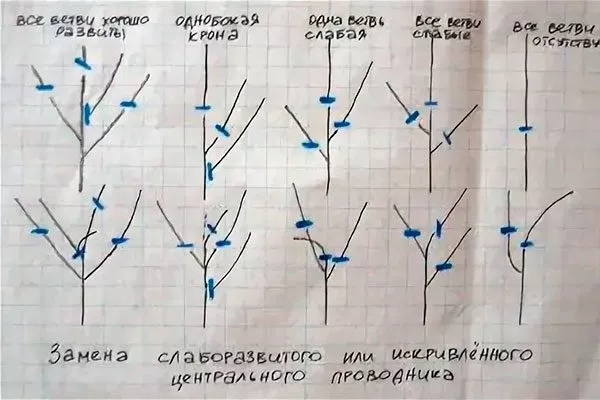 ВСЕ ВЕТВИ ХОРОШО
РАЗВИТЫ
ОДНОБОКАЯ
КРОНА
ОДНА ВЕТВЬ
СЛАБАЯ
ВСЕ ВЕТВИ
СЛАБЫЕ
ВСЕ ВЕТВИ
ОТСУТСТВУ
Замена слаборазвитого или искривлённого
центрального проводника